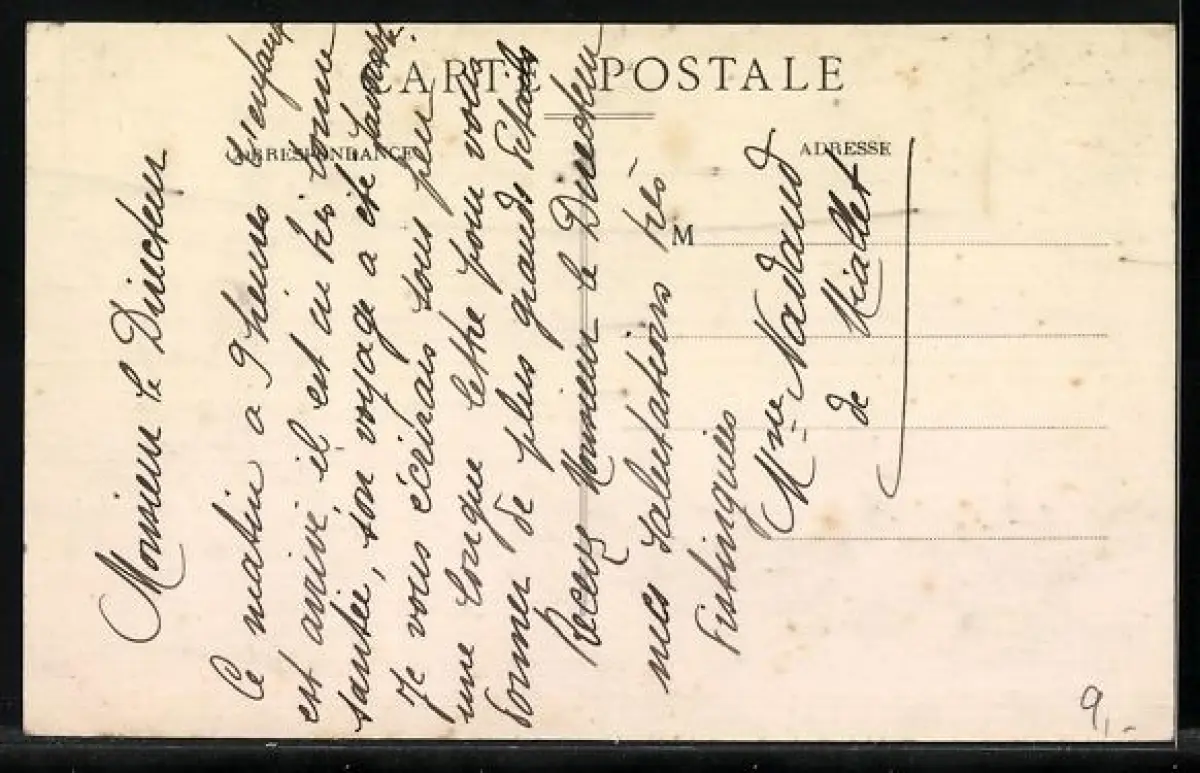 CARTE POSTALE
CORRESPONDANCE
ADRESSE
M
Monsieur le Directeur
Ce matin a 9 heures l'enfant
est arrivé il est en très bonne
santée, son voyage a été
Je vous écrirais sous peu
une longue lettre pour vous
donner de plus grands détails
Recevez Monsieur le Directeur
mes salutations très
distinguées
Mme Nadaud
de Miallet
9,-